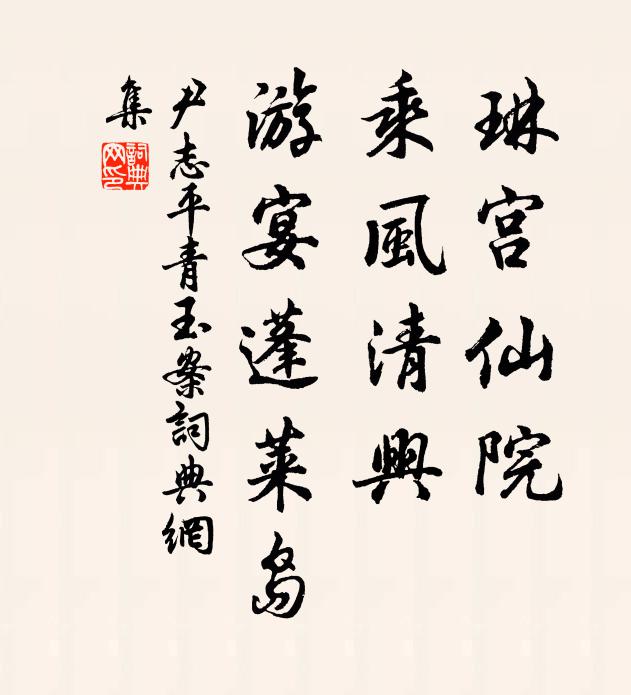 琳宫仙院
乘風清興
游宴蓬萊島
尹志平青玉案詞典網
集
詞典网印